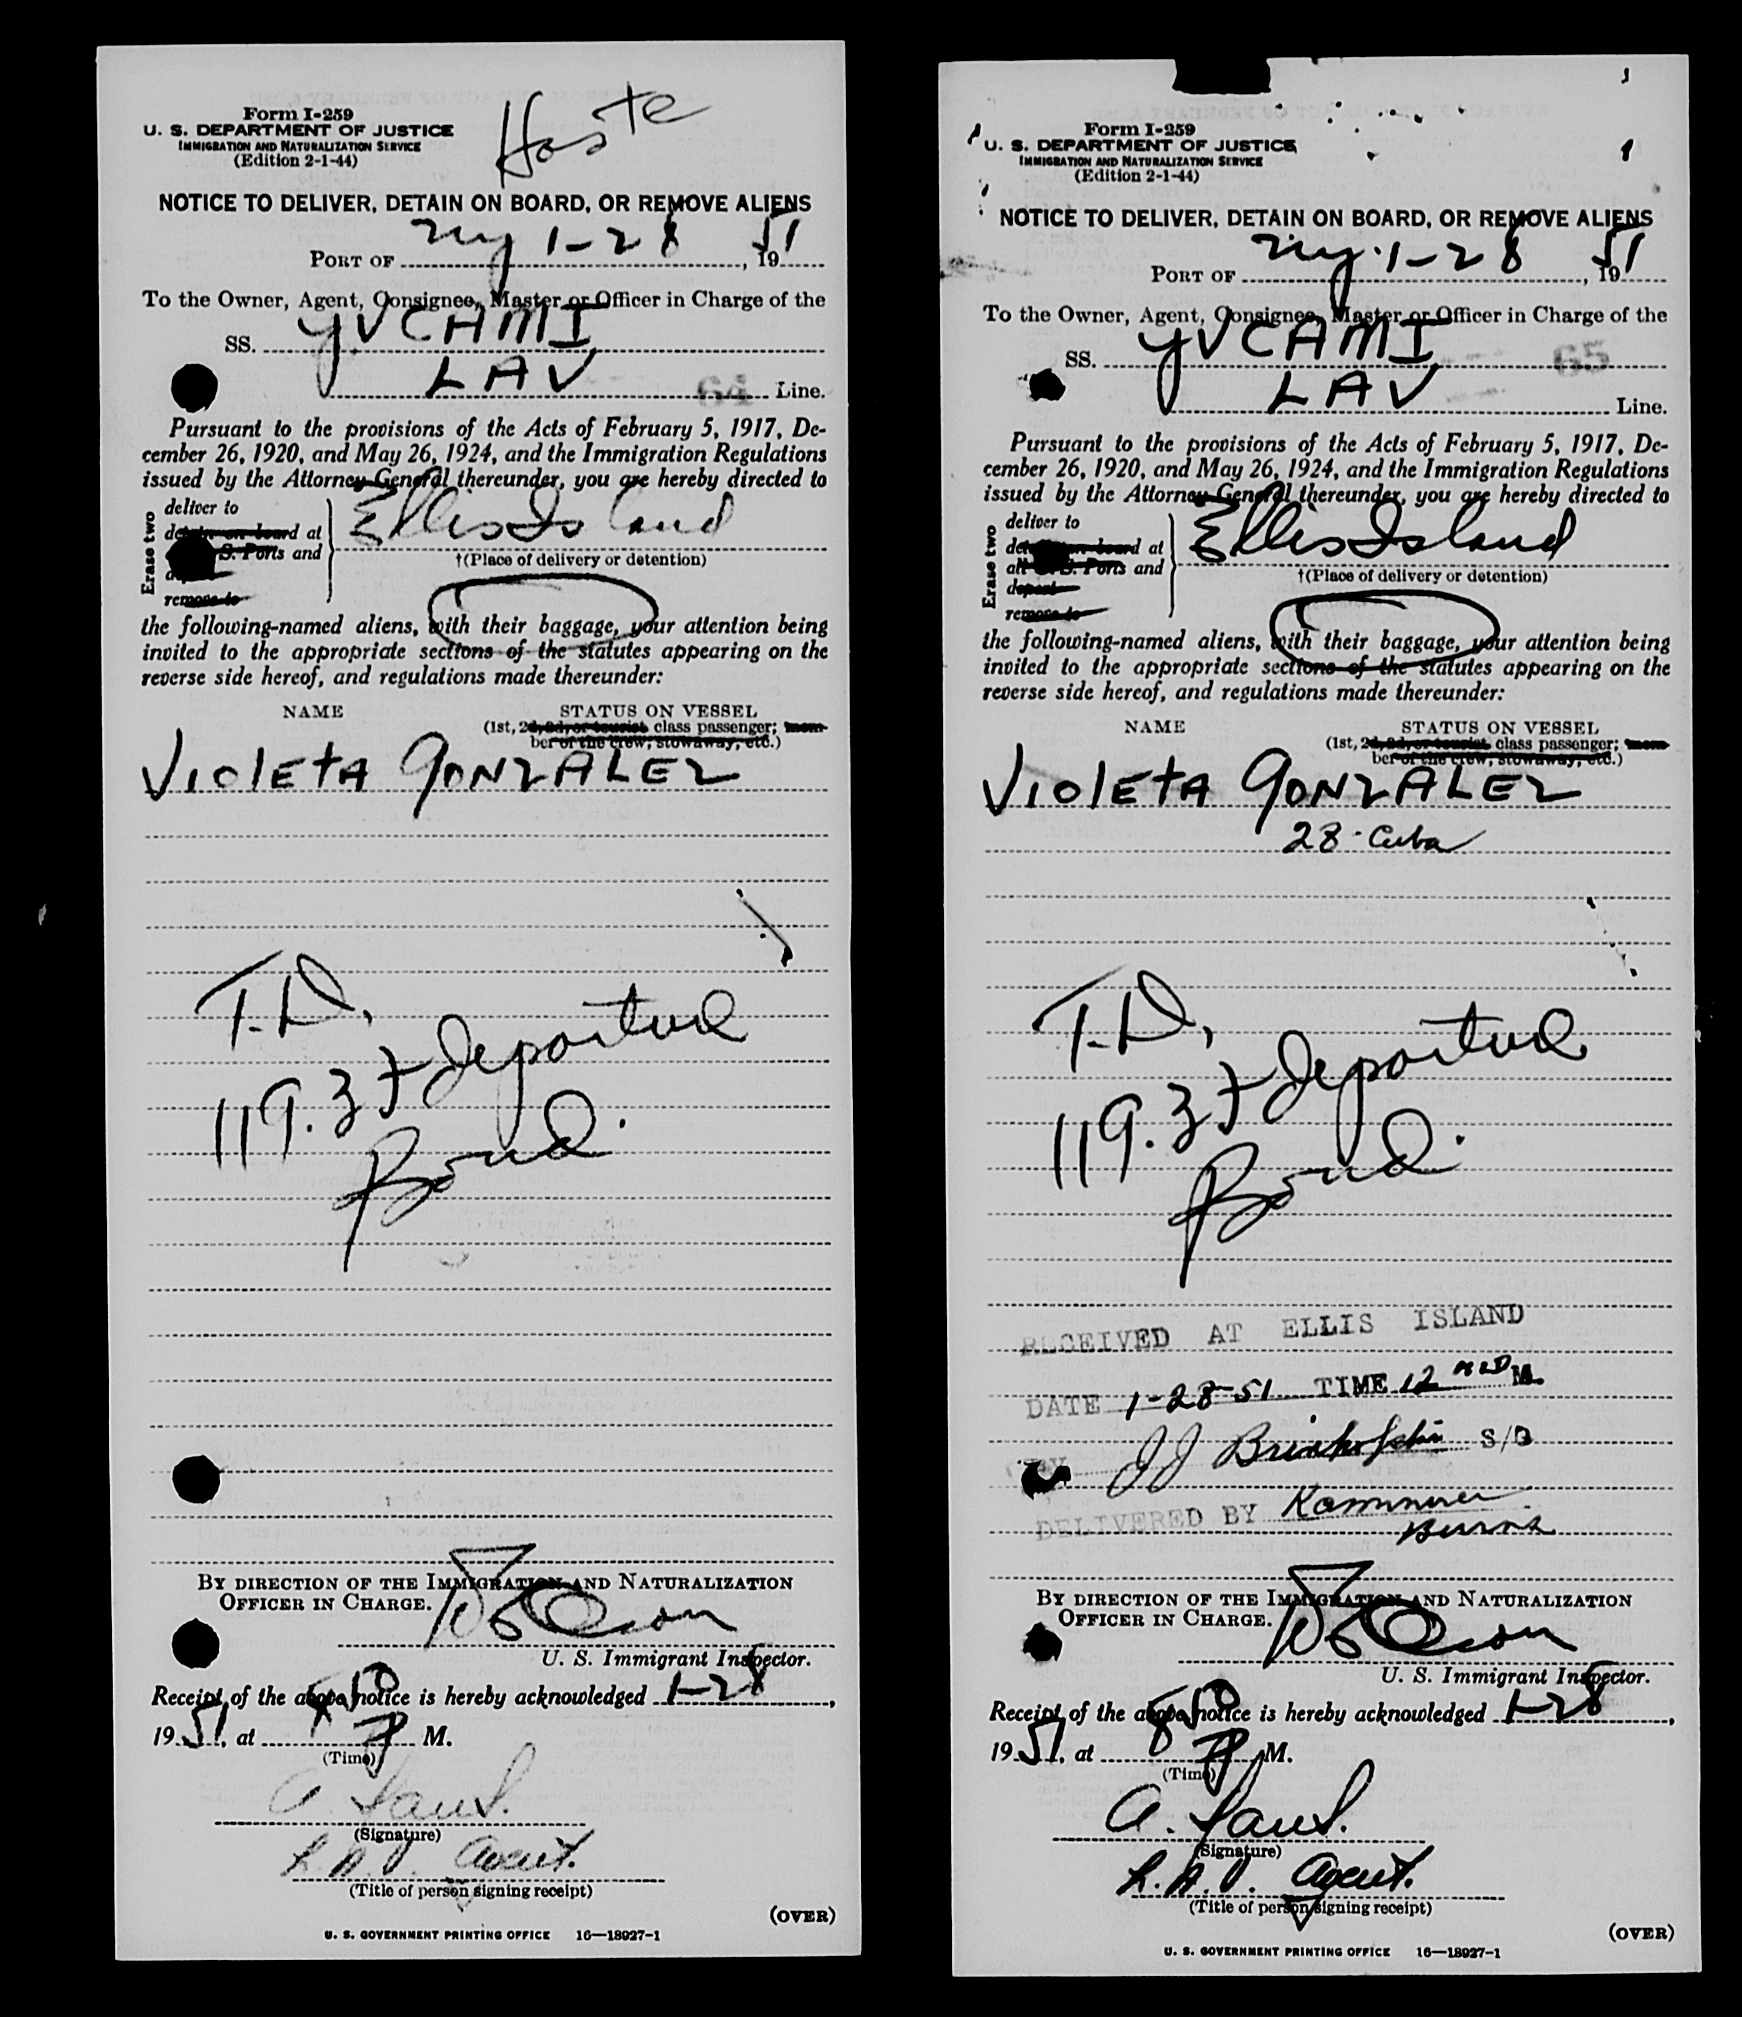 Form I-259
U. S. DEPARTMENT OF JUSTICE
IMMIGRATION AND NATURALIZATION SERVICE
(Edition 2-1-44)
Hoste
NOTICE TO DELIVER, DETAIN ON BOARD, OR REMOVE ALIENS
PORT OF NY 1-28, 1951
To the Owner, Agent, Consignee, Master or Officer in Charge of the
SS. YVCAMI
LAV 64 Line.
Pursuant to the provisions of the Acts of February 5, 1917, De-
cember 26, 1920, and May 26, 1924, and the Immigration Regulations
issued by the Attorney General thereunder, you are hereby directed to
Erase two
deliver to
detain on board at
S. Ports and
remove to
Ellis Island
†(Place of delivery or detention)
the following-named aliens, with their baggage, your attention being
invited to the appropriate sections of the statutes appearing on the
reverse side hereof, and regulations made thereunder:
NAME STATUS ON VESSEL
(1st, 2d, 3d, or tourist class passenger; mem-
ber of the crew, stowaway, etc.)
VIOLETA GONZALEZ
T.D,
119.3 + departure
Bond.
BY DIRECTION OF THE IMMIGRATION AND NATURALIZATION
OFFICER IN CHARGE.
U. S. Immigrant Inspector.
Receipt of the above notice is hereby acknowledged 1-28,
1951, at 850 P M.
(Time)
A.
(Signature)
L.A.V. Agent.
(Title of person signing receipt)
(OVER)
U. S. GOVERNMENT PRINTING OFFICE 16—18927-1
Form I-259
U. S. DEPARTMENT OF JUSTICE
IMMIGRATION AND NATURALIZATION SERVICE
(Edition 2-1-44)
NOTICE TO DELIVER, DETAIN ON BOARD, OR REMOVE ALIENS
PORT OF NY. 1-28, 1951
To the Owner, Agent, Consignee, Master or Officer in Charge of the
SS. YVCAMI 65
LAV Line.
Pursuant to the provisions of the Acts of February 5, 1917, De-
cember 26, 1920, and May 26, 1924, and the Immigration Regulations
issued by the Attorney General thereunder, you are hereby directed to
Erase two
deliver to
detain on board at
all U. S. Ports and
deport
remove to
Ellis Island
†(Place of delivery or detention)
the following-named aliens, with their baggage, your attention being
invited to the appropriate sections of the statutes appearing on the
reverse side hereof, and regulations made thereunder:
NAME STATUS ON VESSEL
(1st, 2d, 3d, or tourist class passenger; mem-
ber of the crew, stowaway, etc.)
VIOLETA GONZALEZ
28 - Cuba
T.D,
119.3 + departure
Bond.
RECEIVED AT ELLIS ISLAND
DATE 1-28-51 TIME 12 MID M.
BY JJ S/O
DELIVERED BY Kammerer
Burns
BY DIRECTION OF THE IMMIGRATION AND NATURALIZATION
OFFICER IN CHARGE.
U. S. Immigrant Inspector.
Receipt of the above notice is hereby acknowledged 1-28,
1951, at 850 P M.
(Time)
A.
(Signature)
L.A.V. Agent.
(Title of person signing receipt)
(OVER)
U. S. GOVERNMENT PRINTING OFFICE 16—18927-1